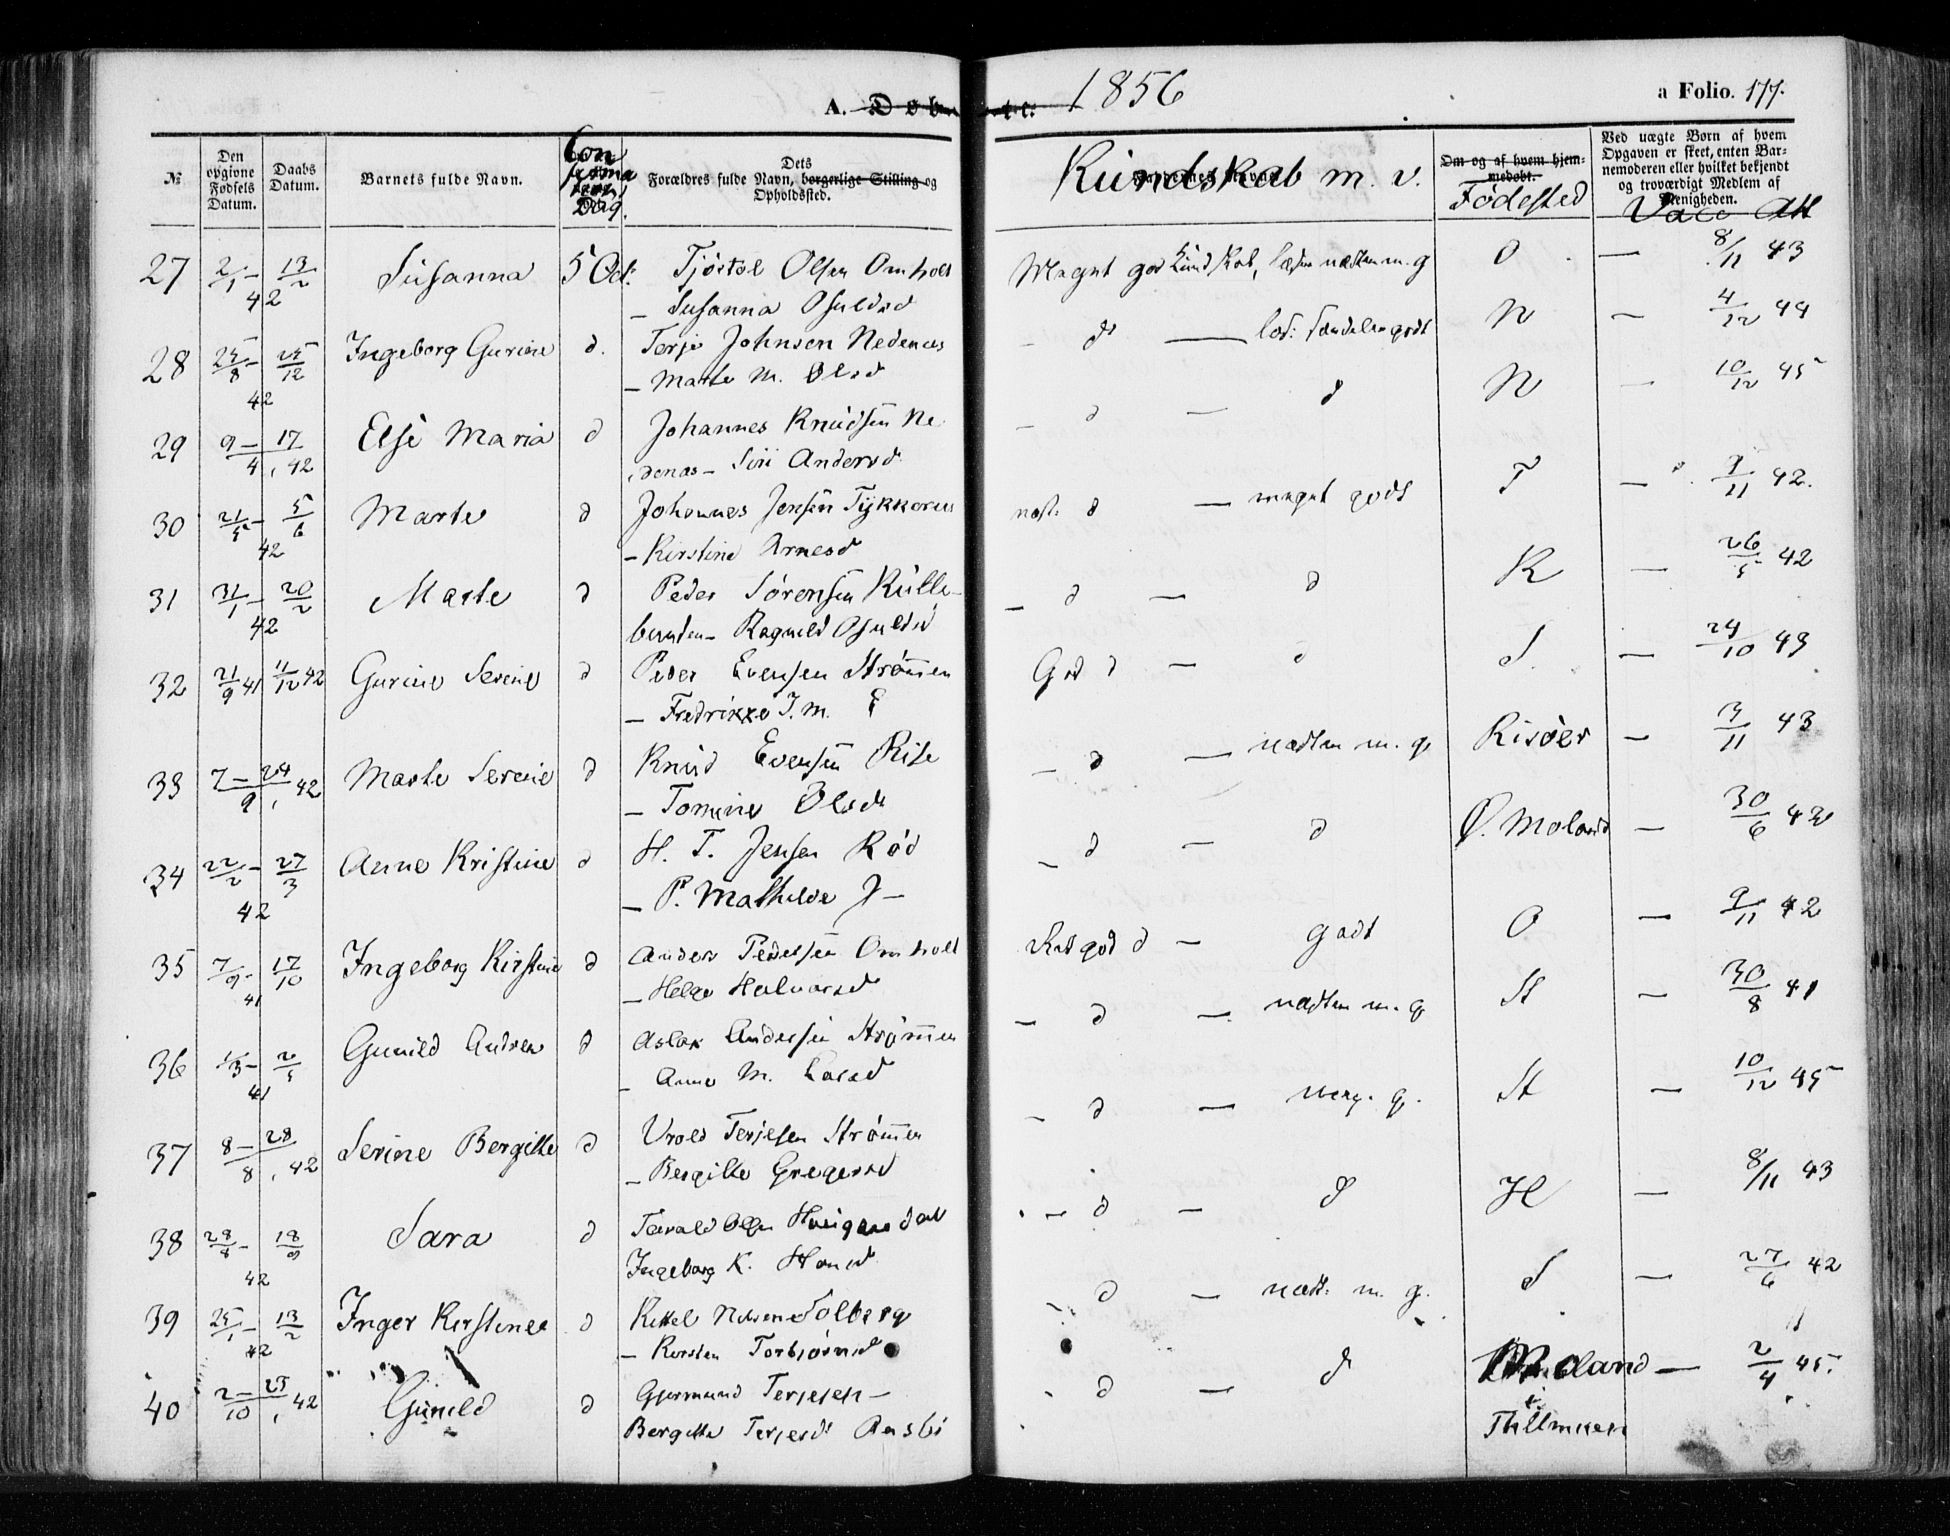 A. Døbte: 1856
a Folio. 177.
№
Den opgivne Fødsels Datum.
Daabs Datum.
Barnets fulde Navn.
Con firma tions Dag.
Dets Forældres fulde Navn, borgerlige Stilling og Opholdssted.
Kundskab m. v.
Om og af hvem hjemmedøbt.
Fødested
Ved uægte Børn af hvem Opgaven er skeet, enten Barnemoderen eller hvilket bekjendt og troværdigt Medlem af Menigheden.
Vacc Att
27 2/1 - 13/2 Susanna 5 Oct: Tjøstol Olsen Omholt Meget god Kundskab, næsten m. g O — 8/11 43
42 — Susanna Osuldsd
28 25/8 - 25/12 Ingeborg Gurine d. Terje Johnsen Nedenæs — d — godt N — 4/12 44
42 — Marte M. Olsd
29 9 - 17 Else Maria d Johannes Knudsen Ne — d — d N — 10/12 45
4, 42 denæs — Siri Andersd
30 21/5 - 5/6 Marte d Johannes Jensen næst: d — meget godt T — 9/11 42.
42 — Kirstine Arnesd
31 31/1 - 20/2 Marte d Peder Sørensen Kulle- — d — d K — 26/5 42
42 bunden — Ragnild Osuldsd
32 21/9 41 11/12 42 Gurine Serine d Peder Evensen Strømmen God d — d S. — 24/10 43
— Fredrikke J. M.
33 7 - 24 Marte Serine d Knud Evensen Rise — d — næsten m. g. Risöer — 3/11 43
9, 42 — Tomine Olsd
34 22/2 - 27/3 Anne Kristine d H. T. Jensen Rød — d — d Ø. Moland — 30/6 42
42 — P. Mathilde J —
35 7/9 - 17/10 Ingeborg Kirstine d Anders Pedersen Omholt god d — godt O — 9/11 42
41 — Helge Halvorsd
36 1/3 - 2/5 Gunild Andrea d Aslak Andersen Strømmen — d — næsten m. g St — 30/8 41
41 — Anne M. Larsd
37 8 - 28 Serine Bergitte d Terjesen Strømmen — d — meg. g. St — 10/12 45
8, 42 — Bergitte Gregersd
38 28/8 - 18/9 Sara d Tarald Olsen — d — d H — 8/11 43
42 Ingeborg K. Hansd
39 25/1 - 13/2 Inger Kirstine d Kittel Nilsen Solberg — d — næst: m. g. S — 27/6 42
42 — Kirsten Torbjørnsd
40 2 - 25 Gunild d Gjermund Terjesen — d — d Moland — 2/4 45.
10, 42 Bergitte Terjesd